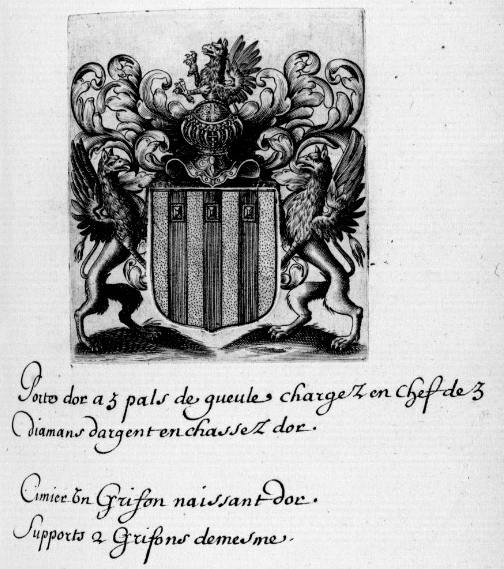 Porte dor a 3 pals de gueule chargez en chef de 3
diamans dargent enchassez dor.
Cimier Un Grifon naissant dor.
Supports 2 Grifons demesme.